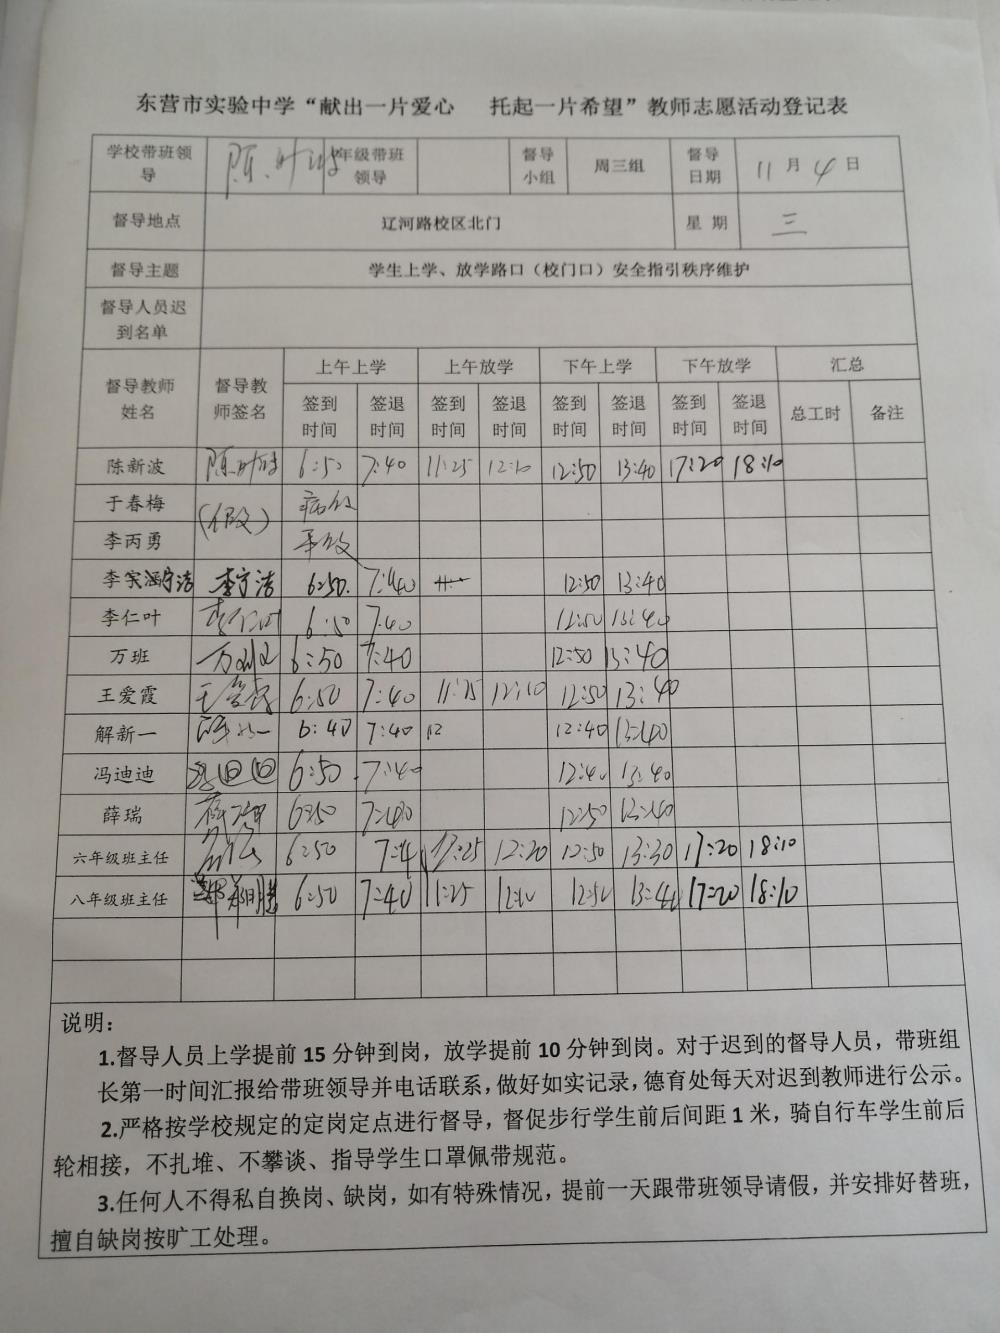 东营市实验中学“献出一片爱心 托起一片希望”教师志愿活动登记表
学校带班领导 年级带班领导 督导小组 周三组 督导日期 11月4日
督导地点 辽河路校区北门 星期 三
督导主题 学生上学、放学路口（校门口）安全指引秩序维护
督导人员迟到名单
督导教师姓名 督导教师签名 上午上学 上午放学 下午上学 下午放学 汇总
签到时间 签退时间 签到时间 签退时间 签到时间 签退时间 签到时间 签退时间 总工时 备注
陈新波 6:50 7:40 11:25 12:10 12:50 13:40 17:20 18:10
于春梅 病假
李丙勇 (假) 事假
李宁洁 李宁洁 6:50 7:40 12:50 13:40
李仁叶 李仁叶 6:50 7:40 12:50 13:40
万班 6:50 7:40 12:50 13:40
王爱霞 王爱霞 6:50 7:40 11:25 12:10 12:50 13:40
解新一 解新一 6:40 7:40 12 12:40 13:40
冯迪迪 冯迪迪 6:50 7:40 12:40 13:40
薛瑞 薛瑞 6:50 7:40 12:50 13:40
六年级班主任 6:50 7:4 11:25 12:20 12:50 13:30 17:20 18:10
八年级班主任 6:50 7:40 11:25 12:10 12:50 13:40 17:20 18:10
说明：
1.督导人员上学提前 15 分钟到岗，放学提前 10 分钟到岗。对于迟到的督导人员，带班组
长第一时间汇报给带班领导并电话联系，做好如实记录，德育处每天对迟到教师进行公示。
2.严格按学校规定的定岗定点进行督导，督促步行学生前后间距 1 米，骑自行车学生前后
轮相接，不扎堆、不攀谈、指导学生口罩佩带规范。
3.任何人不得私自换岗、缺岗，如有特殊情况，提前一天跟带班领导请假，并安排好替班，
擅自缺岗按旷工处理。